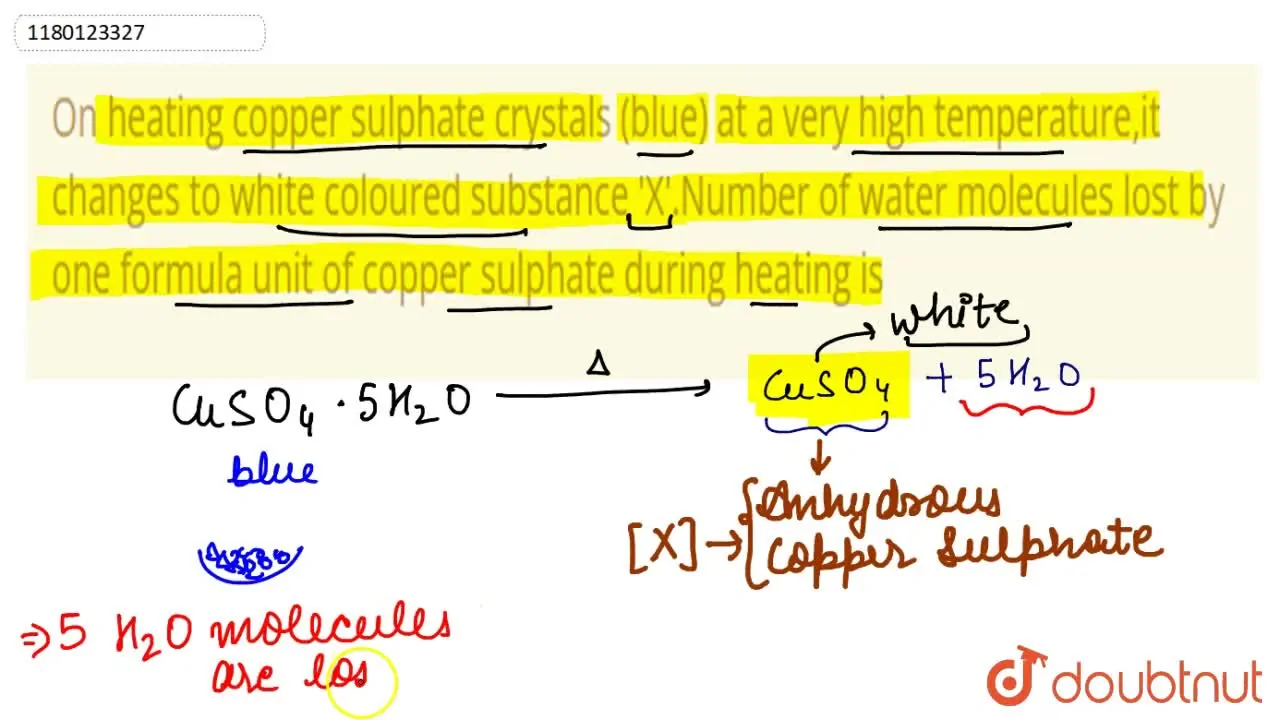 1180123327
On heating copper sulphate crystals (blue) at a very high temperature,it
changes to white coloured substance 'X'.Number of water molecules lost by
one formula unit of copper sulphate during heating is
white
Δ
CuSO4 · 5H2O → CuSO4 + 5H2O
blue
[X] → { Anhydrous
Copper Sulphate
⇒ 5 H2O molecules
are los
doubtnut